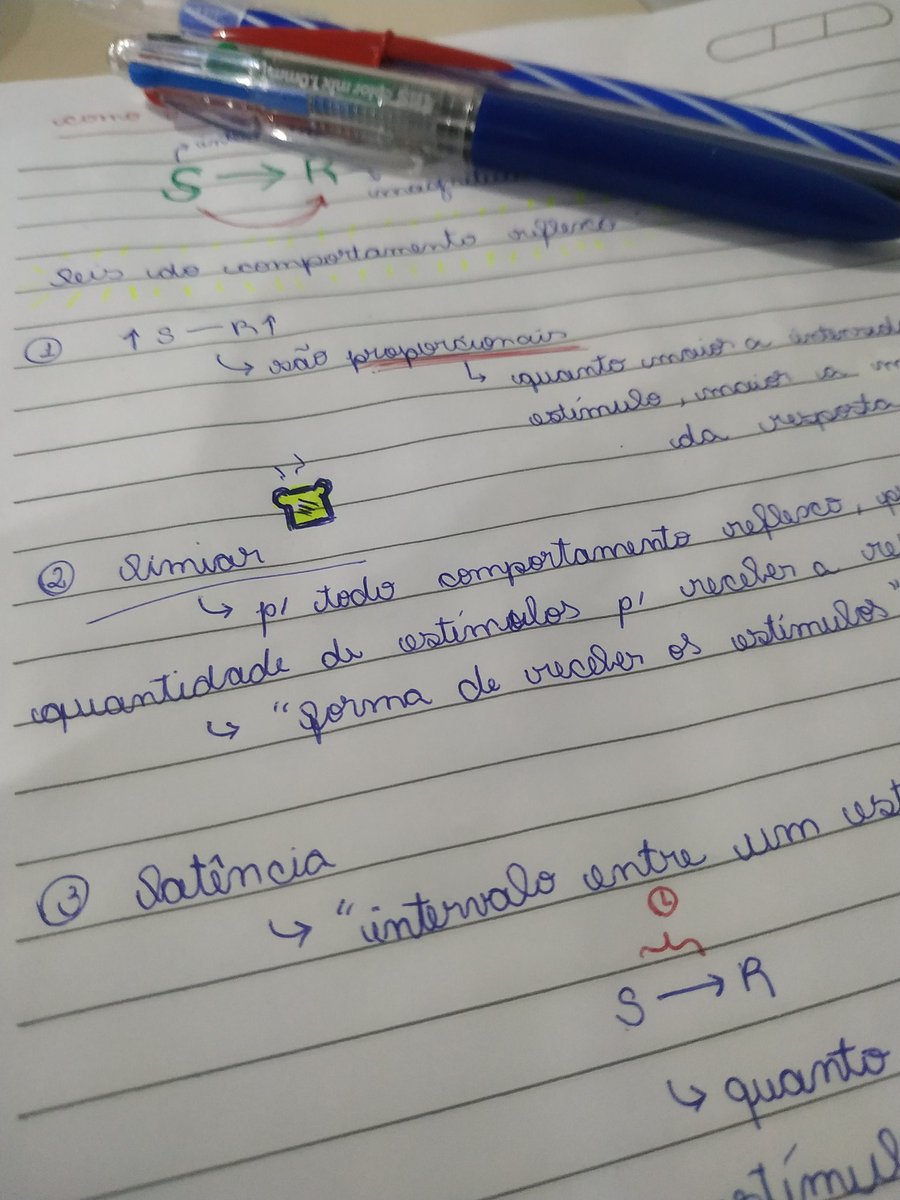 como
S → R
Leis do comportamento reflexo
① ↑ S — R ↑
↳ são proporcionais
↳ quanto maior a
estímulo, maior a
da resposta
② Limiar
↳ p/ todo comportamento reflexo,
quantidade de estímulos p/ receber a
↳ "forma de receber os estímulos"
③ Latência
↳ "intervalo entre um
S → R
↳ quanto